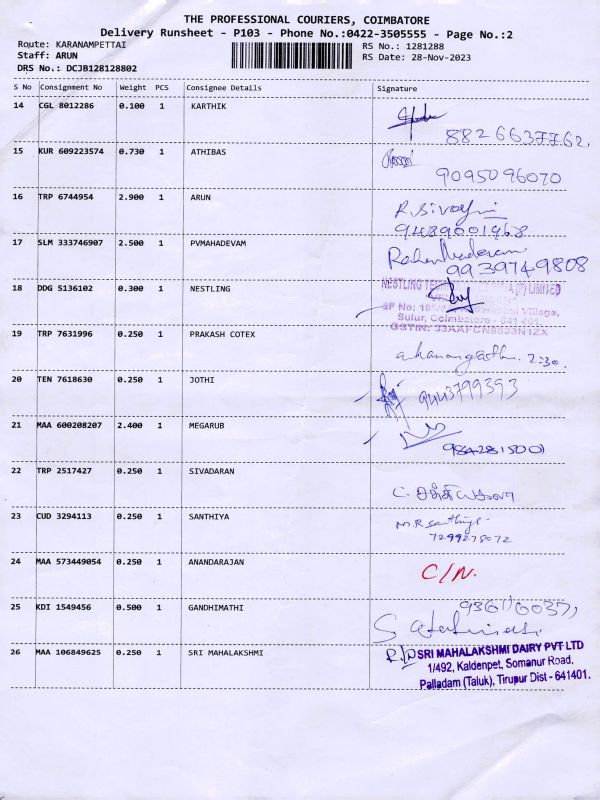 THE PROFESSIONAL COURIERS, COIMBATORE
Delivery Runsheet - P103 - Phone No.:0422-3505555 - Page No.:2
Route: KARANAMPETTAI RS No.: 1281288
Staff: ARUN RS Date: 28-Nov-2023
DRS No.: DCJB128128802
S No Consignment No Weight PCS Consignee Details Signature
14 CGL 8012286 0.100 1 KARTHIK
8826637762,
15 KUR 609223574 0.730 1 ATHIBAS
9095096070
16 TRP 6744954 2.900 1 ARUN
9489001968
17 SLM 333746907 2.500 1 PVMAHADEVAM
9939749808
18 DDG 5136102 0.300 1 NESTLING
NESTLING LIMITED
SF No: Village,
Sulur, Coimbatore - 641 401.
19 TRP 7631996 0.250 1 PRAKASH COTEX
2:30.
20 TEN 7618630 0.250 1 JOTHI
9443799393
21 MAA 600208207 2.400 1 MEGARUB
22 TRP 2517427 0.250 1 SIVADARAN
23 CUD 3294113 0.250 1 SANTHIYA
7299278072
24 MAA 573449054 0.250 1 ANANDARAJAN
C/N.
25 KDI 1549456 0.500 1 GANDHIMATHI
26 MAA 106849625 0.250 1 SRI MAHALAKSHMI
SRI MAHALAKSHMI DAIRY PVT LTD
1/492, Kaldenpet, Somanur Road,
Palladam (Taluk), Tirupur Dist - 641401.